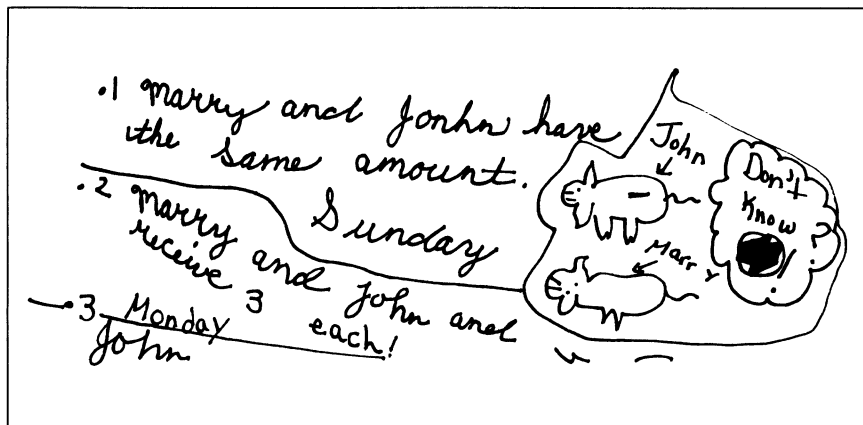 .1 Marry and Jonhn have
the same amount.
Sunday
.2 Marry and John and
receive 3 each!
.3 Monday
John
John
Marry
Don't
Know
!